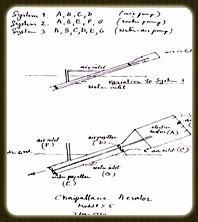 System 1. A, B, C, D (air pump)
System 2. A, B, E, F, G (water pump)
System 3. A, B, C, D, E, G (water-air pump)
air inlet
air inlet
Variation to System 3
water inlet
air inlet
air propeller
(D)
motor (A)
air inlet (C)
water inlet
(G)
water propeller
(E)
(F)
Chapallana Aerator
Model # 5